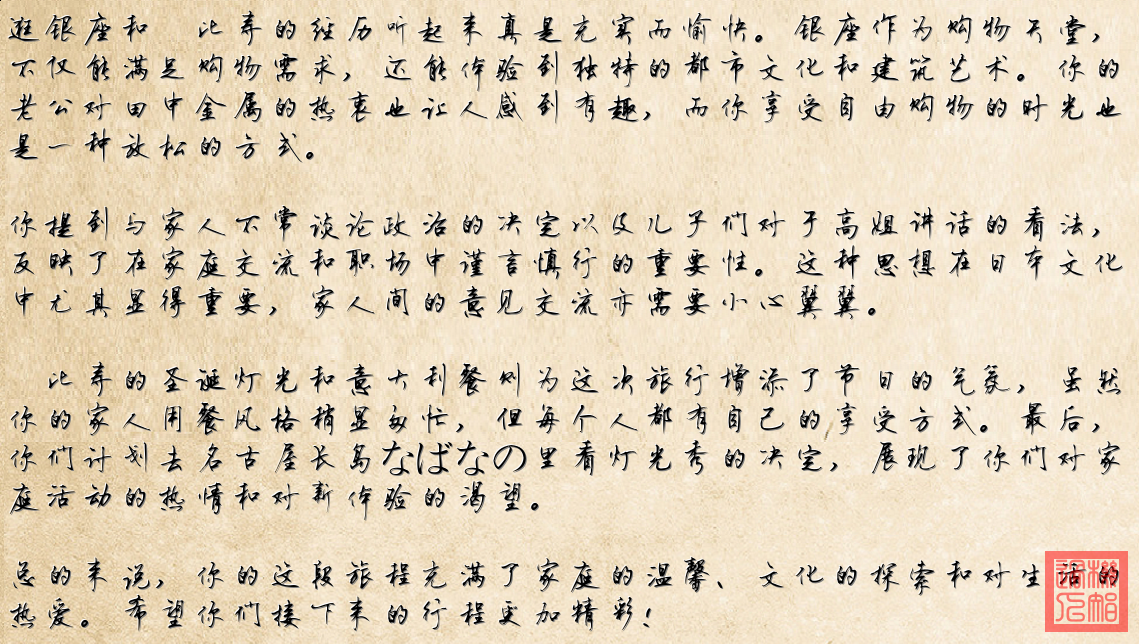 逛银座和　比寿的经历听起来真是充实而愉快。银座作为购物天堂，
不仅能满足购物需求，还能体验到独特的都市文化和建筑艺术。你的
老公对田中金属的热衷也让人感到有趣，而你享受自由购物的时光也
是一种放松的方式。
你提到与家人不常谈论政治的决定以及儿子们对于高姐讲话的看法，
反映了在家庭交流和职场中谨言慎行的重要性。这种思想在日本文化
中尤其显得重要，家人间的意见交流亦需要小心翼翼。
　比寿的圣诞灯光和意大利餐则为这次旅行增添了节日的气氛，虽然
你的家人用餐风格稍显匆忙，但每个人都有自己的享受方式。最后，
你们计划去名古屋长岛なばなの里看灯光秀的决定，展现了你们对家
庭活动的热情和对新体验的渴望。
总的来说，你的这段旅程充满了家庭的温馨、文化的探索和对生活的
热爱。希望你们接下来的行程更加精彩！